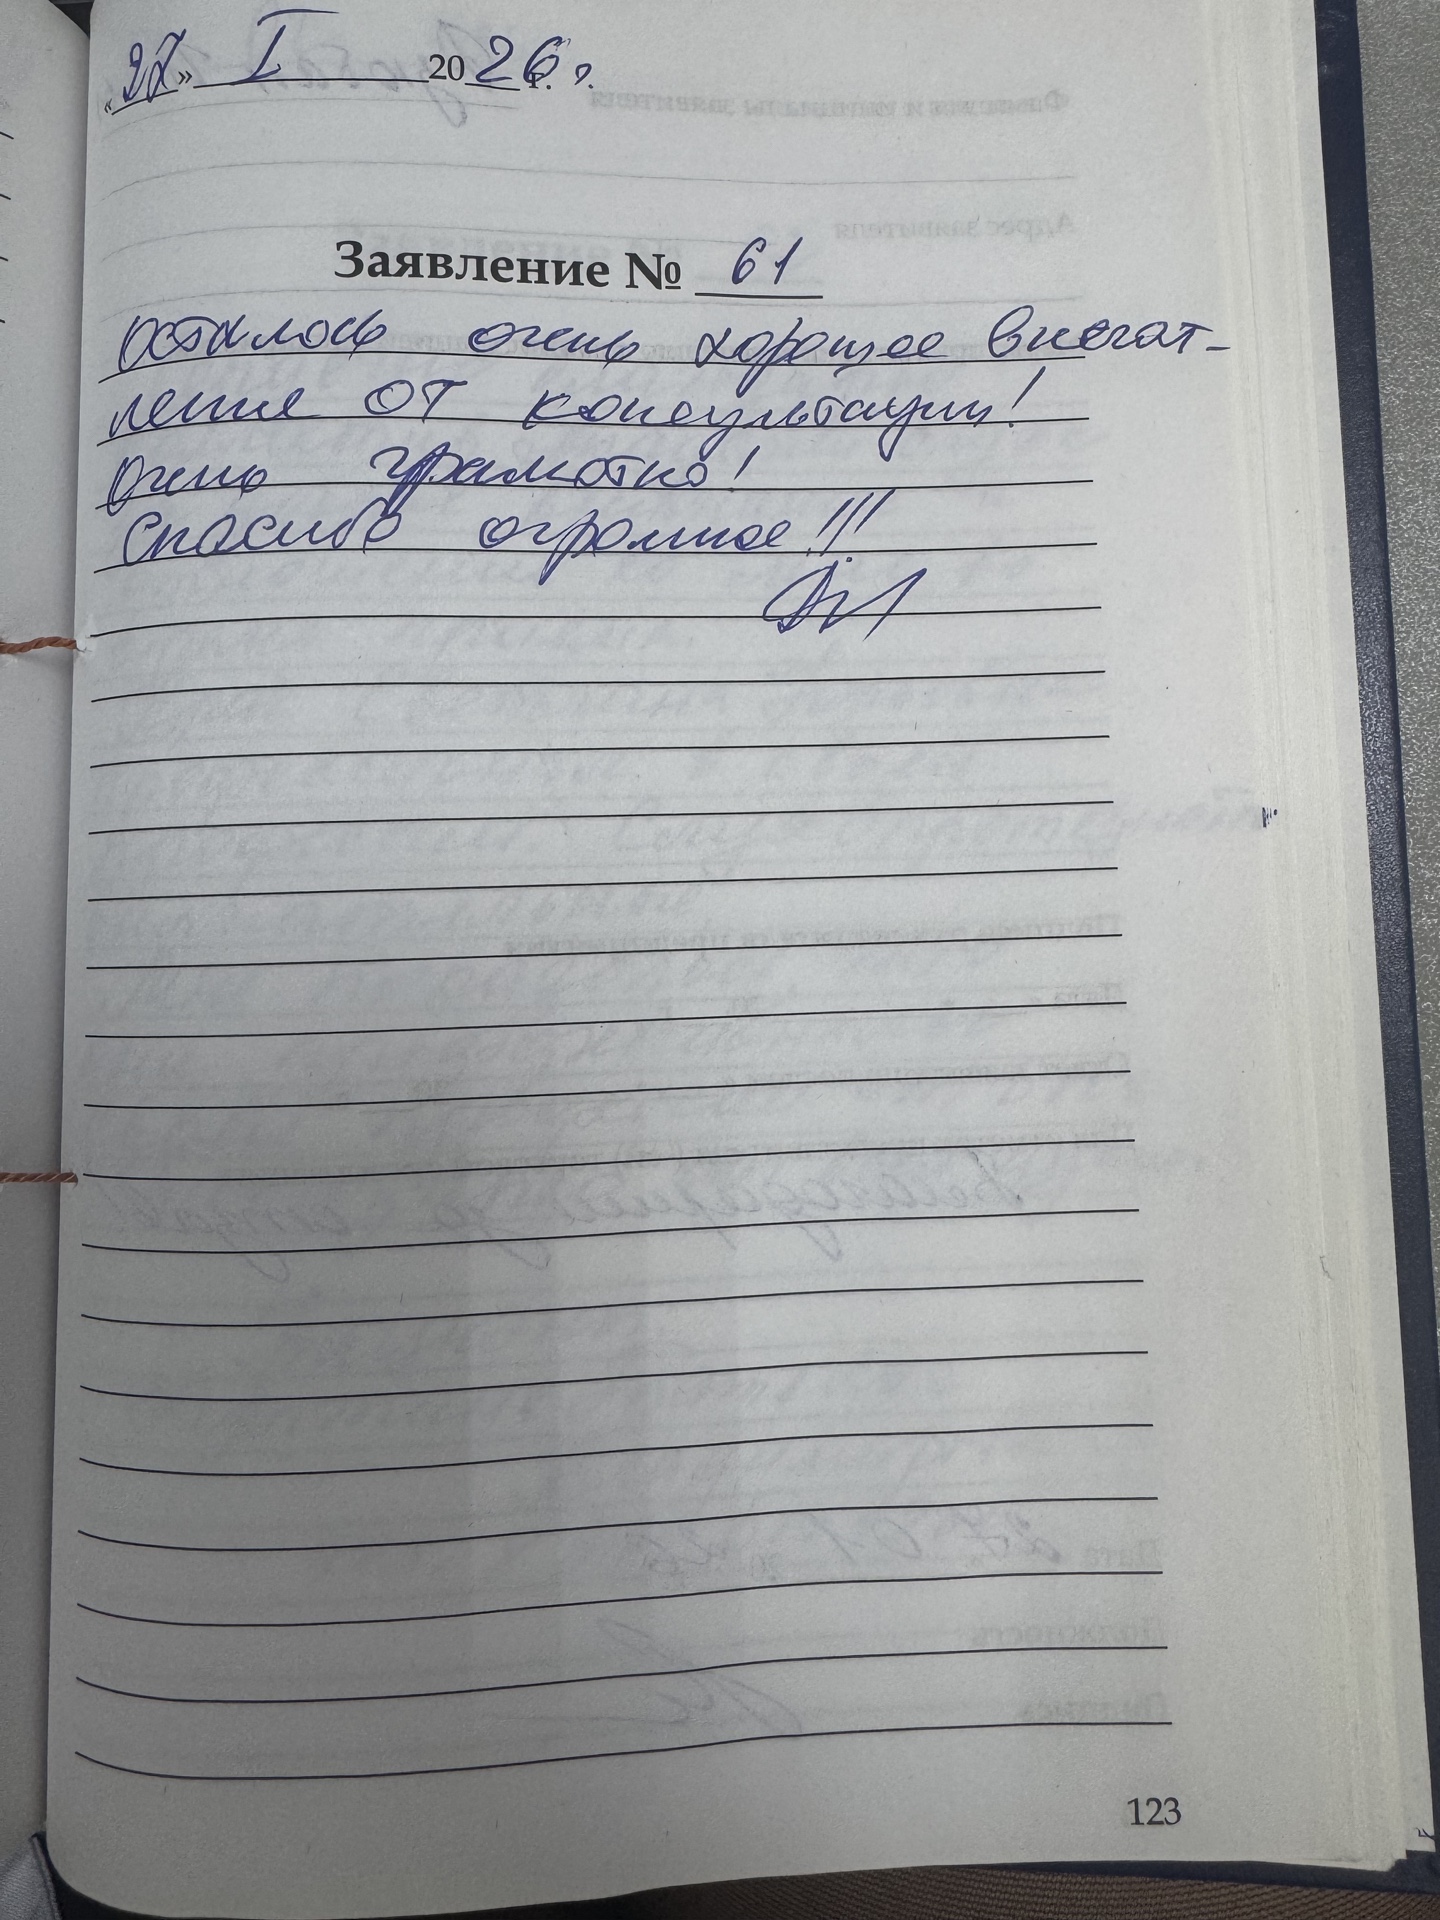 «27» I 2026 г.
Заявление № 61
осталось очень хорошее впечат-
ление от консультации!
очень грамотно!
спасибо огромное!!!
123